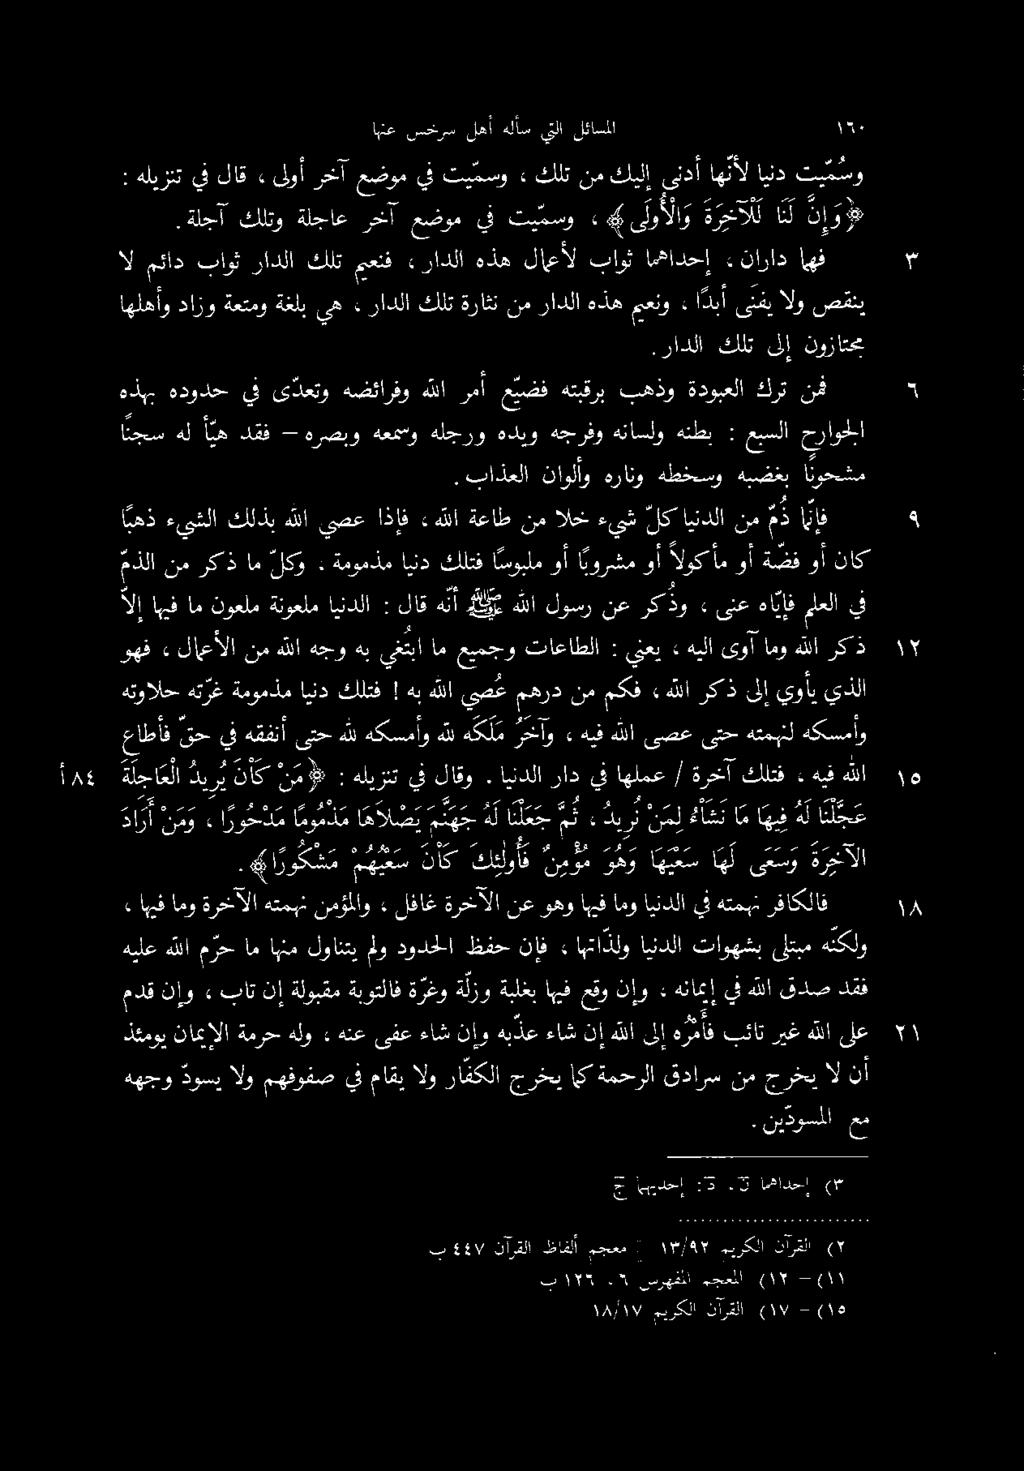 ١٦٠ المسائل التي سأله أهل سرخس عنها
وسُمّيت دنيا لأنّها أدنى إليك من تلك ، وسمّيت في موضع آخر أولى ، قال في تنزيله :
﴿وَإِنَّ لَنَا لَلْآخِرَةَ وَالْأُولَى﴾ ، وسمّيت في موضع آخر عاجلة وتلك آجلة .
٣ فهما داران ، إحداهما ثواب لأعمال هذه الدار ، فنعيم تلك الدار ثواب دائم لا
ينقص ولا يفنى أبدًا ، ونعيم هذه الدار من نثارة تلك الدار ، هي بلغة ومتعة وزاد وأهلها
مجتازون إلى تلك الدار .
٦ فمن ترك العبودة وذهب برقبته فضيّع أمر الله وفرائضه وتعدّى في حدوده بهذه
الجوارح السبع : بطنه ولسانه وفرجه ويديه ورجله وسمعه وبصره – فقد هيّأ له سجنًا
مشحونًا بغضبه وسخطه وناره وألوان العذاب .
٩ فإنّما ذُمّ من الدنيا كلّ شيء خلا من طاعة الله ، فإذا عصي الله بذلك الشيء ذهبًا
كان أو فضّة أو مأكولاً أو مشروبًا أو ملبوسًا فتلك دنيا مذمومة . وكلّ ما ذكر من الذمّ
في العلم فإيّاه عنى ، وذُكر عن رسول الله ﷺ أنّه قال : الدنيا ملعونة ملعون ما فيها إلاّ
١٢ ذكر الله وما آوى اليه ، يعني : الطاعات وجميع ما ابتُغي به وجه الله من الأعمال ، فهو
الذي يأوي إلى ذكر الله ، فكم من درهم عُصي الله به ! فتلك دنيا مذمومة غرّته حلاوته
وأمسكه لنهمته حتى عصى الله فيه ، وآخَرُ مَلَكَه لله وأمسكه لله حتى أنفقه في حقّ فأطاع
١٥ الله فيه ، فتلك آخرة / عملها في دار الدنيا . وقال في تنزيله : ﴿مَنْ كَانَ يُرِيدُ الْعَاجِلَةَ ٨٤ أ
عَجَّلْنَا لَهُ فِيهَا مَا نَشَاْءُ لِمَنْ نُرِيدُ ، ثُمَّ جَعَلْنَا لَهُ جَهَنَّمَ يَصْلَاهَا مَذْمُومًا مَدْحُورًا ، وَمَنْ أَرَادَ
الآخِرَةَ وَسَعَى لَهَا سَعْيَهَا وَهُوَ مُؤْمِنٌ فَأُولٰئِكَ كَانَ سَعْيُهُمْ مَشْكُورًا﴾ .
١٨ فالكافر نهمته في الدنيا وما فيها وهو عن الآخرة غافل ، والمؤمن نهمته الآخرة وما فيها ،
ولكنّه مبتلى بشهوات الدنيا ولذّاتها ، فإن حفظ الحدود ولم يتناول منها ما حرّم الله عليه
فقد صدق الله في إيمانه ، وإن وقع فيها بغلبة وزلّة وغرّة فالتوبة مقبولة إن تاب ، وإن قدم
٢١ على الله غير تائب فأَمْرُه إلى الله إن شاء عذّبه وإن شاء عفى عنه ، وله حرمة الإيمان يومئذ
أن لا يخرج من سرادق الرحمة كما يخرج الكفّار ولا يقام في صفوفهم ولا يسودّ وجهه
مع المسودّين .
٣) إحداهما ن ، د : إحديهما ج
٢) القرآن الكريم ١٣/٩٢ ] معجم ألفاظ القرآن ٤٤٧ ب
١١) – ١٢) المعجم المفهرس ٦ ، ١٢٦ ب
١٥) – ١٧) القرآن الكريم ١٨/١٧